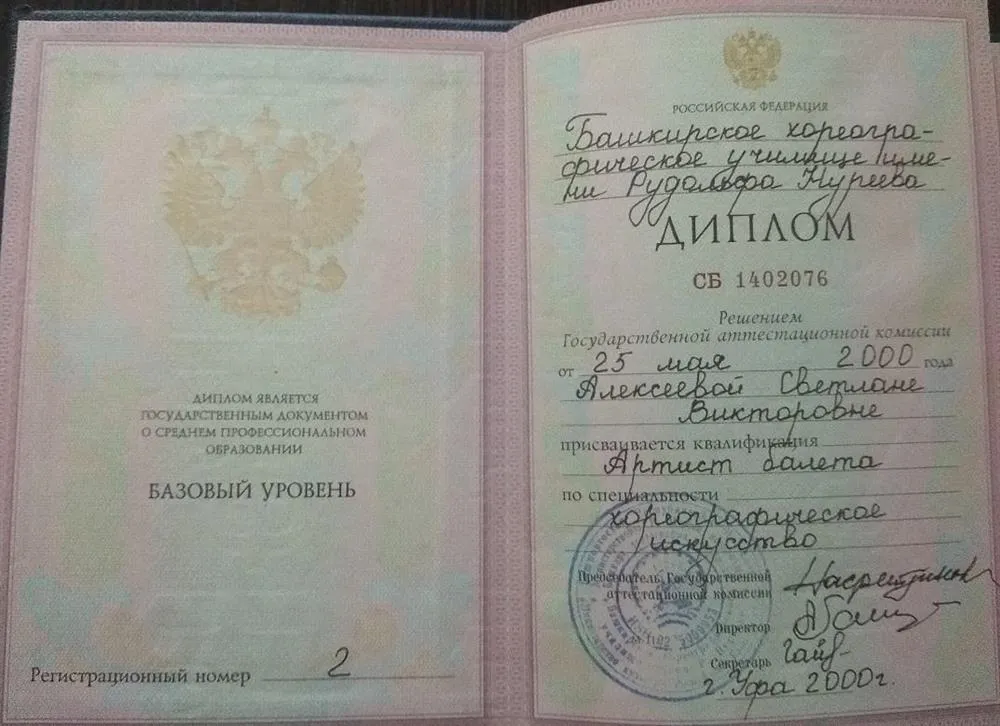 ДИПЛОМ ЯВЛЯЕТСЯ
ГОСУДАРСТВЕННЫМ ДОКУМЕНТОМ
О СРЕДНЕМ ПРОФЕССИОНАЛЬНОМ
ОБРАЗОВАНИИ
БАЗОВЫЙ УРОВЕНЬ
Регистрационный номер 2
РОССИЙСКАЯ ФЕДЕРАЦИЯ
Башкирское хореогра-
фическое училище име-
ни Рудольфа Нуреева
ДИПЛОМ
СБ 1402076
Решением
Государственной аттестационной комиссии
от 25 мая 2000 года
Алексеевой Светлане
Викторовне
присваивается квалификация
Артист балета
по специальности
хореографическое
искусство
Председатель Государственной
аттестационной комиссии
Директор
Секретарь
г. Уфа 2000г.